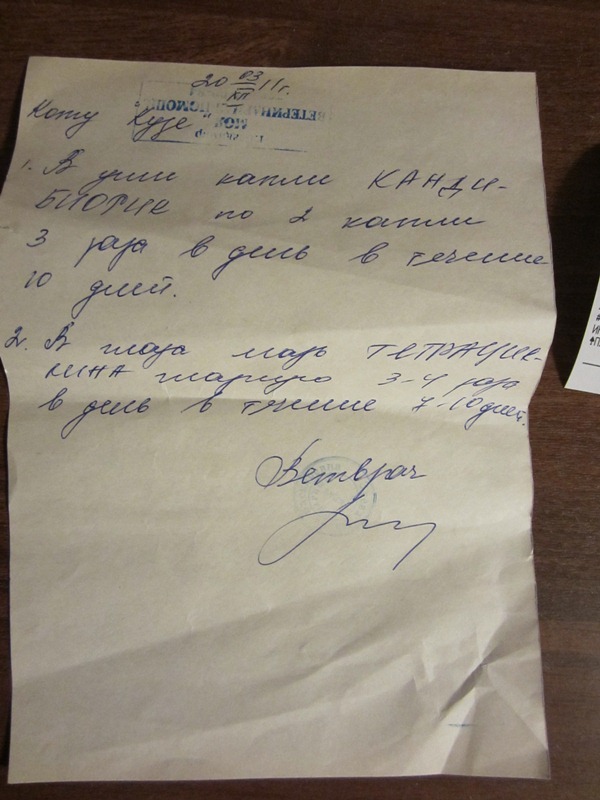 20 03/XII 11г.
Коту Кузе
ВЕТЕРИНАРНАЯ ПОМОЩЬ
1. В уши капли КАНДИ-
БИОТИК по 2 капли
3 раза в день в течение
10 дней.
2. В глаза мазь ТЕТРАЦИК-
ЛИНА глазную 3-4 раза
в день в течение 7-10 дней.
Ветврач